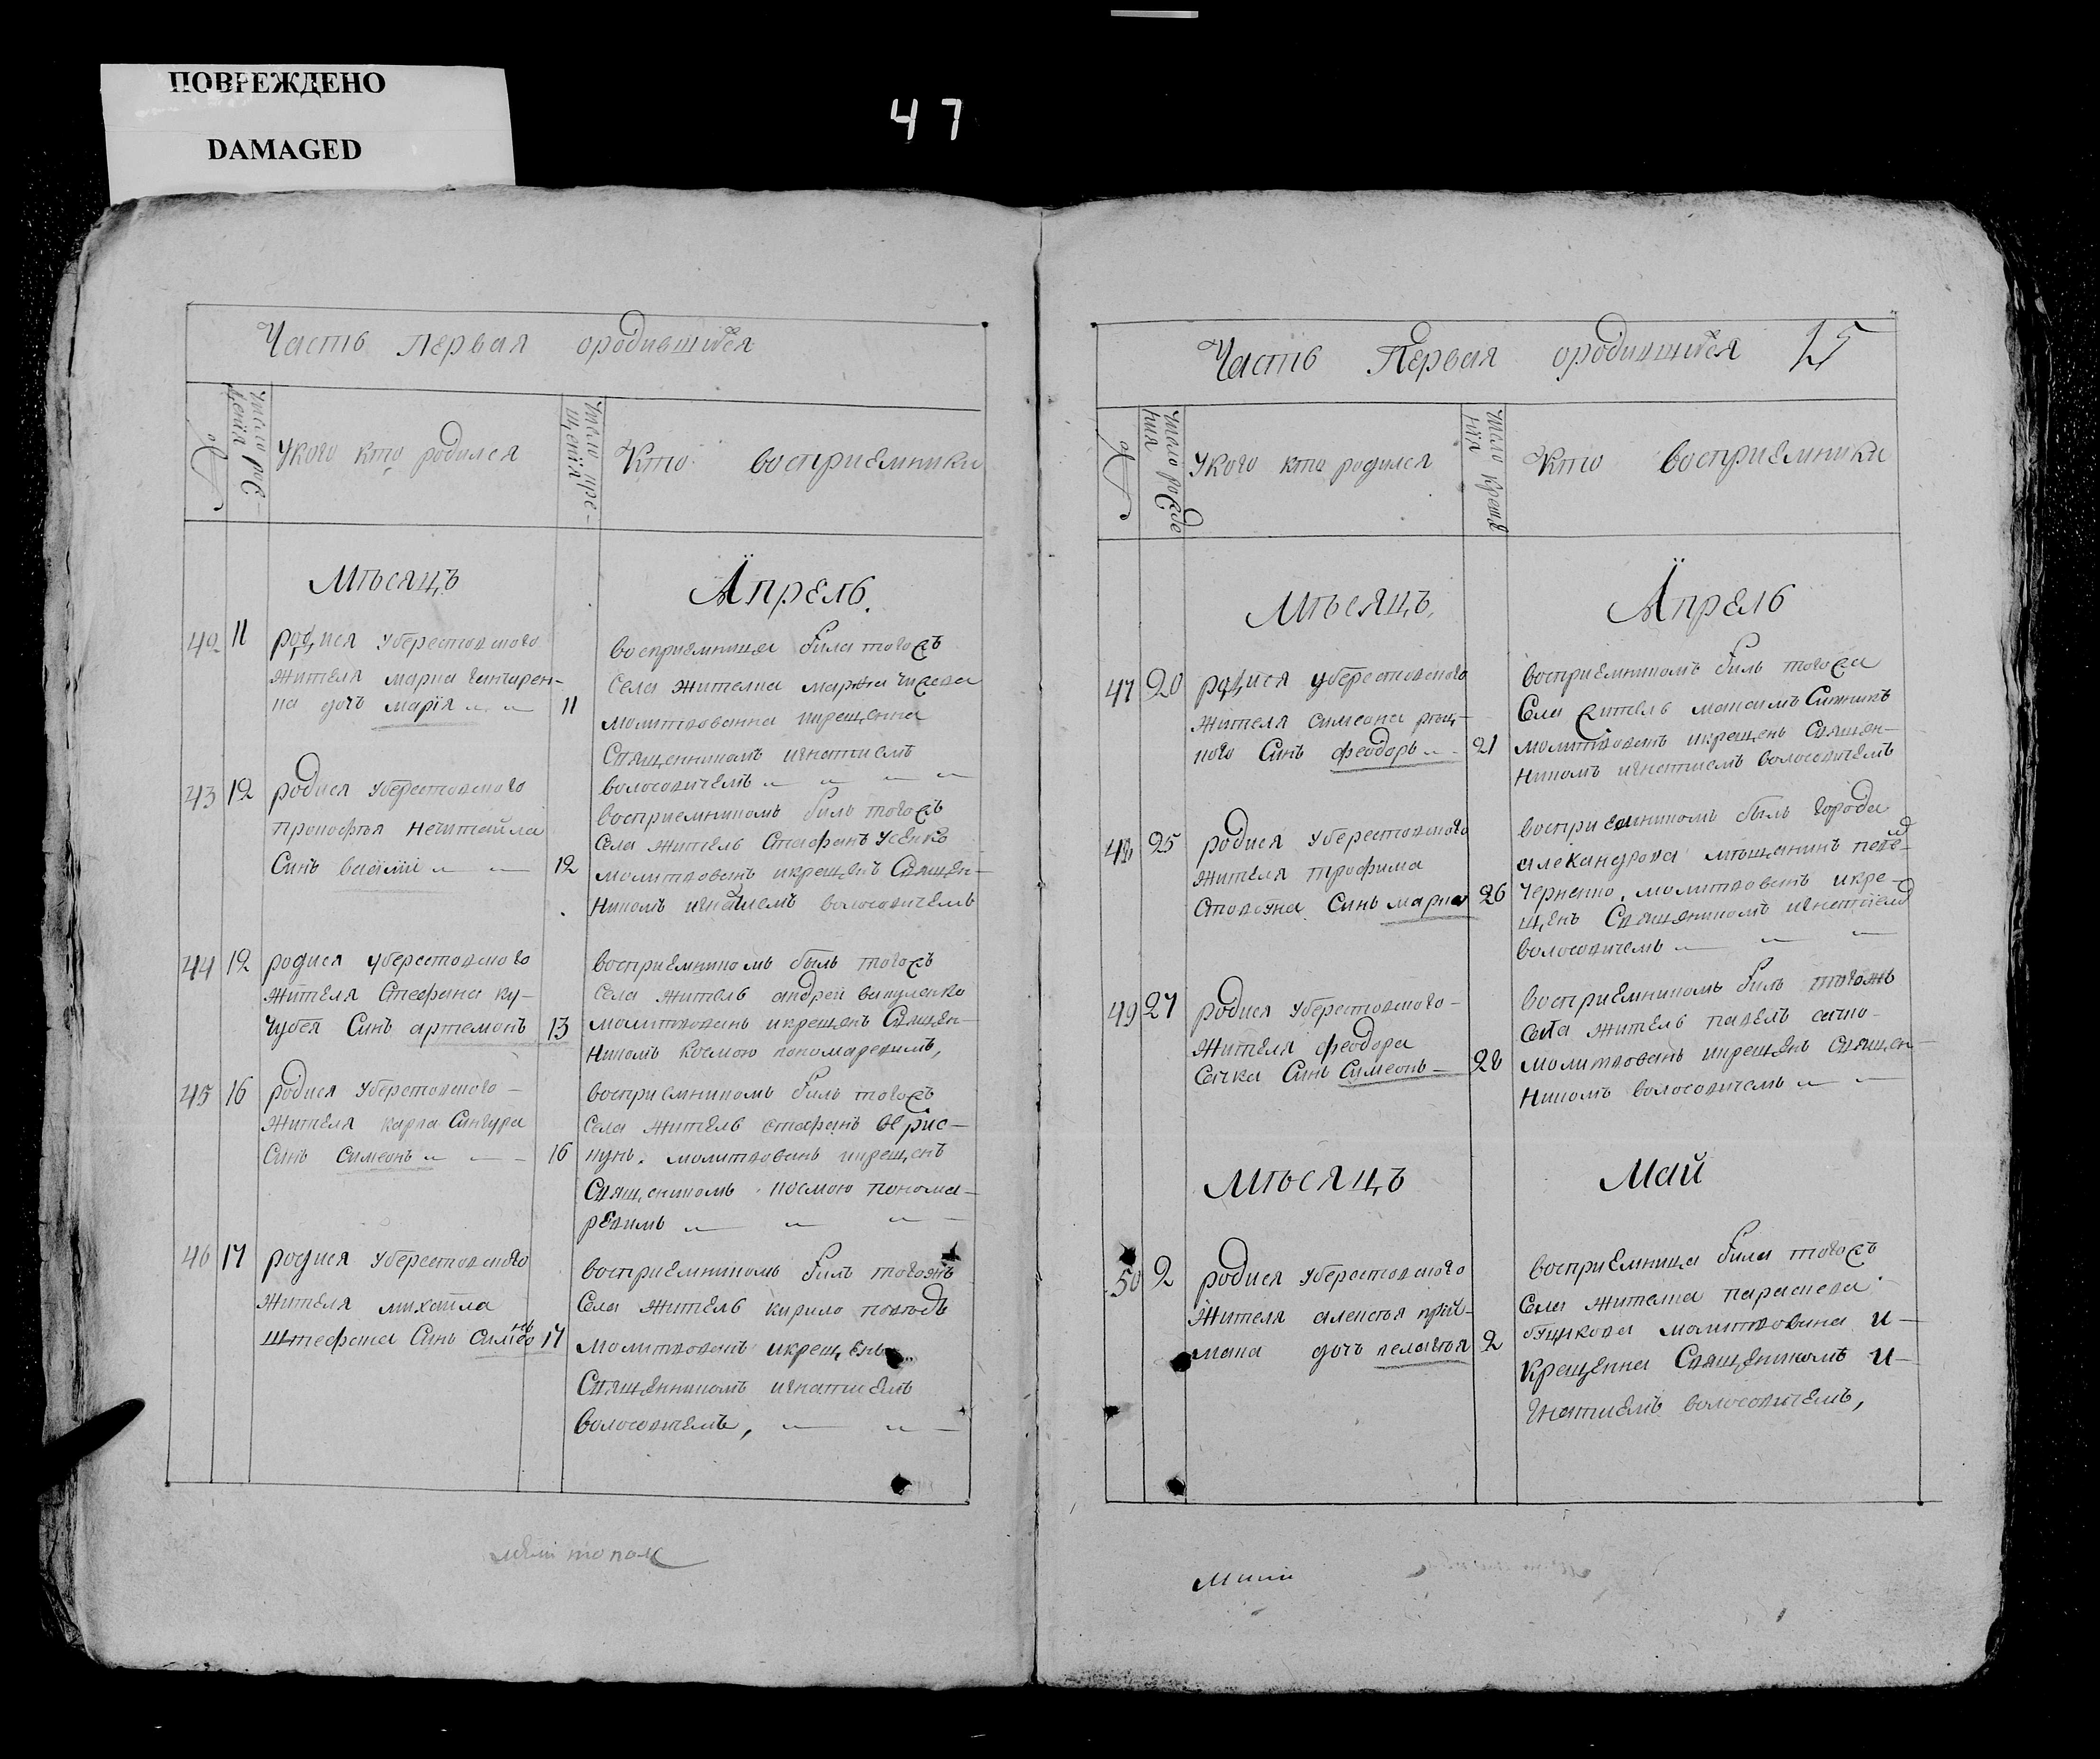 ПОВРЕЖДЕНО
DAMAGED
47
Часть первая ородившихся
№
Число рож-
дения
Укого кто родился
Число кре-
щения
Кто восприемники
Мѣсяцъ Апрель.
42 11 родися уберестовского
жителя марка
на дочь марія 11
восприемница била тогожъ
села жителка
молитвованна икрещенна
Священникомъ игнатиемъ
волосовичемъ
43 12 родися уберестовского
прокофія нечитайла
Синъ василий 12
восприемникомъ билъ тогожъ
села жителъ Стефанъ Усенко
молитвованъ икрещенъ Священ-
никомъ игнатиемъ волосовичемъ
44 12 родися уберестовского
жителя Стефана ку-
чубея Синъ артемонъ 13
восприемникомъ былъ тогожъ
села жителъ андрей вакуленко
молитвованъ икрещенъ Священ-
никомъ космою пономаревимъ,
45 16 родися уберестовского
жителя карпа Сингура
Синъ Симеонъ 16
восприемникомъ билъ тогожъ
села жителъ стефанъ
молитвованъ икрещенъ
Священикомъ космою понома-
ревимъ
46 17 родися уберестовского
жителя михайла
Штефана Синъ Симеонъ 17
восприемникомъ билъ тогожъ
села жителъ кирило
молитвованъ икрещенъ
Священникомъ игнатиемъ
волосовичемъ,
Часть Первая ородившихся 15
№
Число рожде
ния
Укого кто родился
Число креще
нія
Кто восприемники
Мѣсяцъ. Апрель
47 20 родися уберестовского
жителя симеона
ного Синъ феодоръ 21
восприемникомъ билъ тогожа
Села жителъ максимъ
молитвованъ икрещенъ Священ-
никомъ игнатиемъ волосовичемъ
48 25 родися уберестовского
жителя трофима
Синъ марко 26
восприемникомъ былъ города
александрова мѣщанинъ
Черненко, молитвованъ икре-
щенъ Священикомъ игнатием
волосовичемъ
49 27 родися уберестовского
жителя феодора
Сачка Синъ Симеонъ 28
восприемникомъ билъ тогожъ
села жителъ павелъ сачко
молитвованъ икрещенъ священ-
никомъ волосовичемъ
Мѣсяцъ Май
50 2 родися уберестовского
жителя алексѣя
дочь пелагѣя 2
восприемница била тогожъ
Села жителка параскева
молитвована и
крещенна Священикомъ и-
гнатиемъ волосовичемъ,